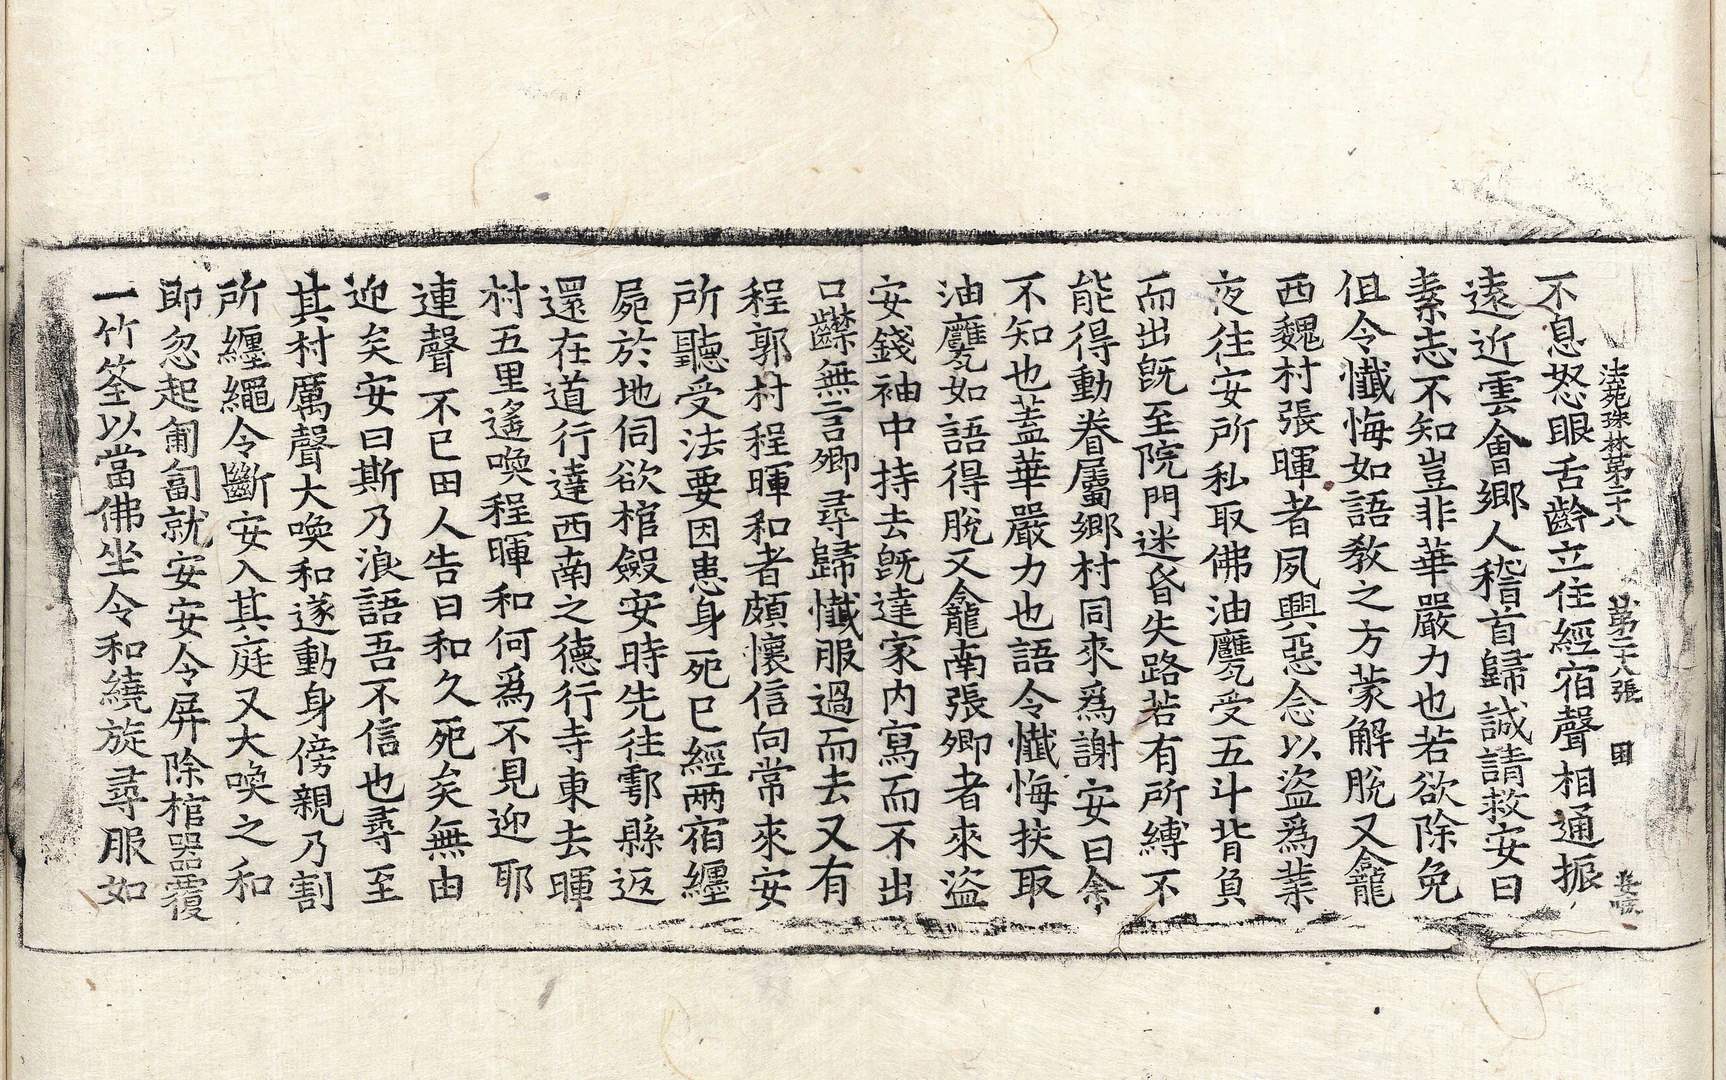 法苑珠林第二十八　第二十八張　困
不息怒眼舌齡立住經宿聲相通振
遠近雲會鄉人稽首歸誠請救安曰
素志不知豈非華嚴力也若欲除免
但令懺悔如語教之方蒙解脫又龕
西魏村張暉者夙興惡念以盜爲業
夜往安所私取佛油甕受五斗背負
而出旣至院門迷昏失路若有所縛不
能得動眷屬鄉村同來爲謝安曰余
不知也蓋華嚴力也語令懺悔扶取
油甕如語得脫又龕南張卿者來盜
安錢袖中持去旣達家內寫而不出
口噤無言卿尋歸懺服過而去又有
程郭村程暉和者頗懷信向常來安
所聽受法要因患身死已經兩宿纏
屍於地伺欲棺斂安時先往鄠縣返
還在道行達西南之德行寺東去暉
村五里遙喚程暉和何爲不見迎耶
連聲不已田人告曰和久死矣無由
迎矣安曰斯乃浪語吾不信也尋至
其村厲聲大喚和遂動身傍親乃割
所纏繩令斷安入其庭又大喚之和
卽忽起匍匐就安安令屛除棺器覆
一竹筌以當佛坐令和繞旋尋服如